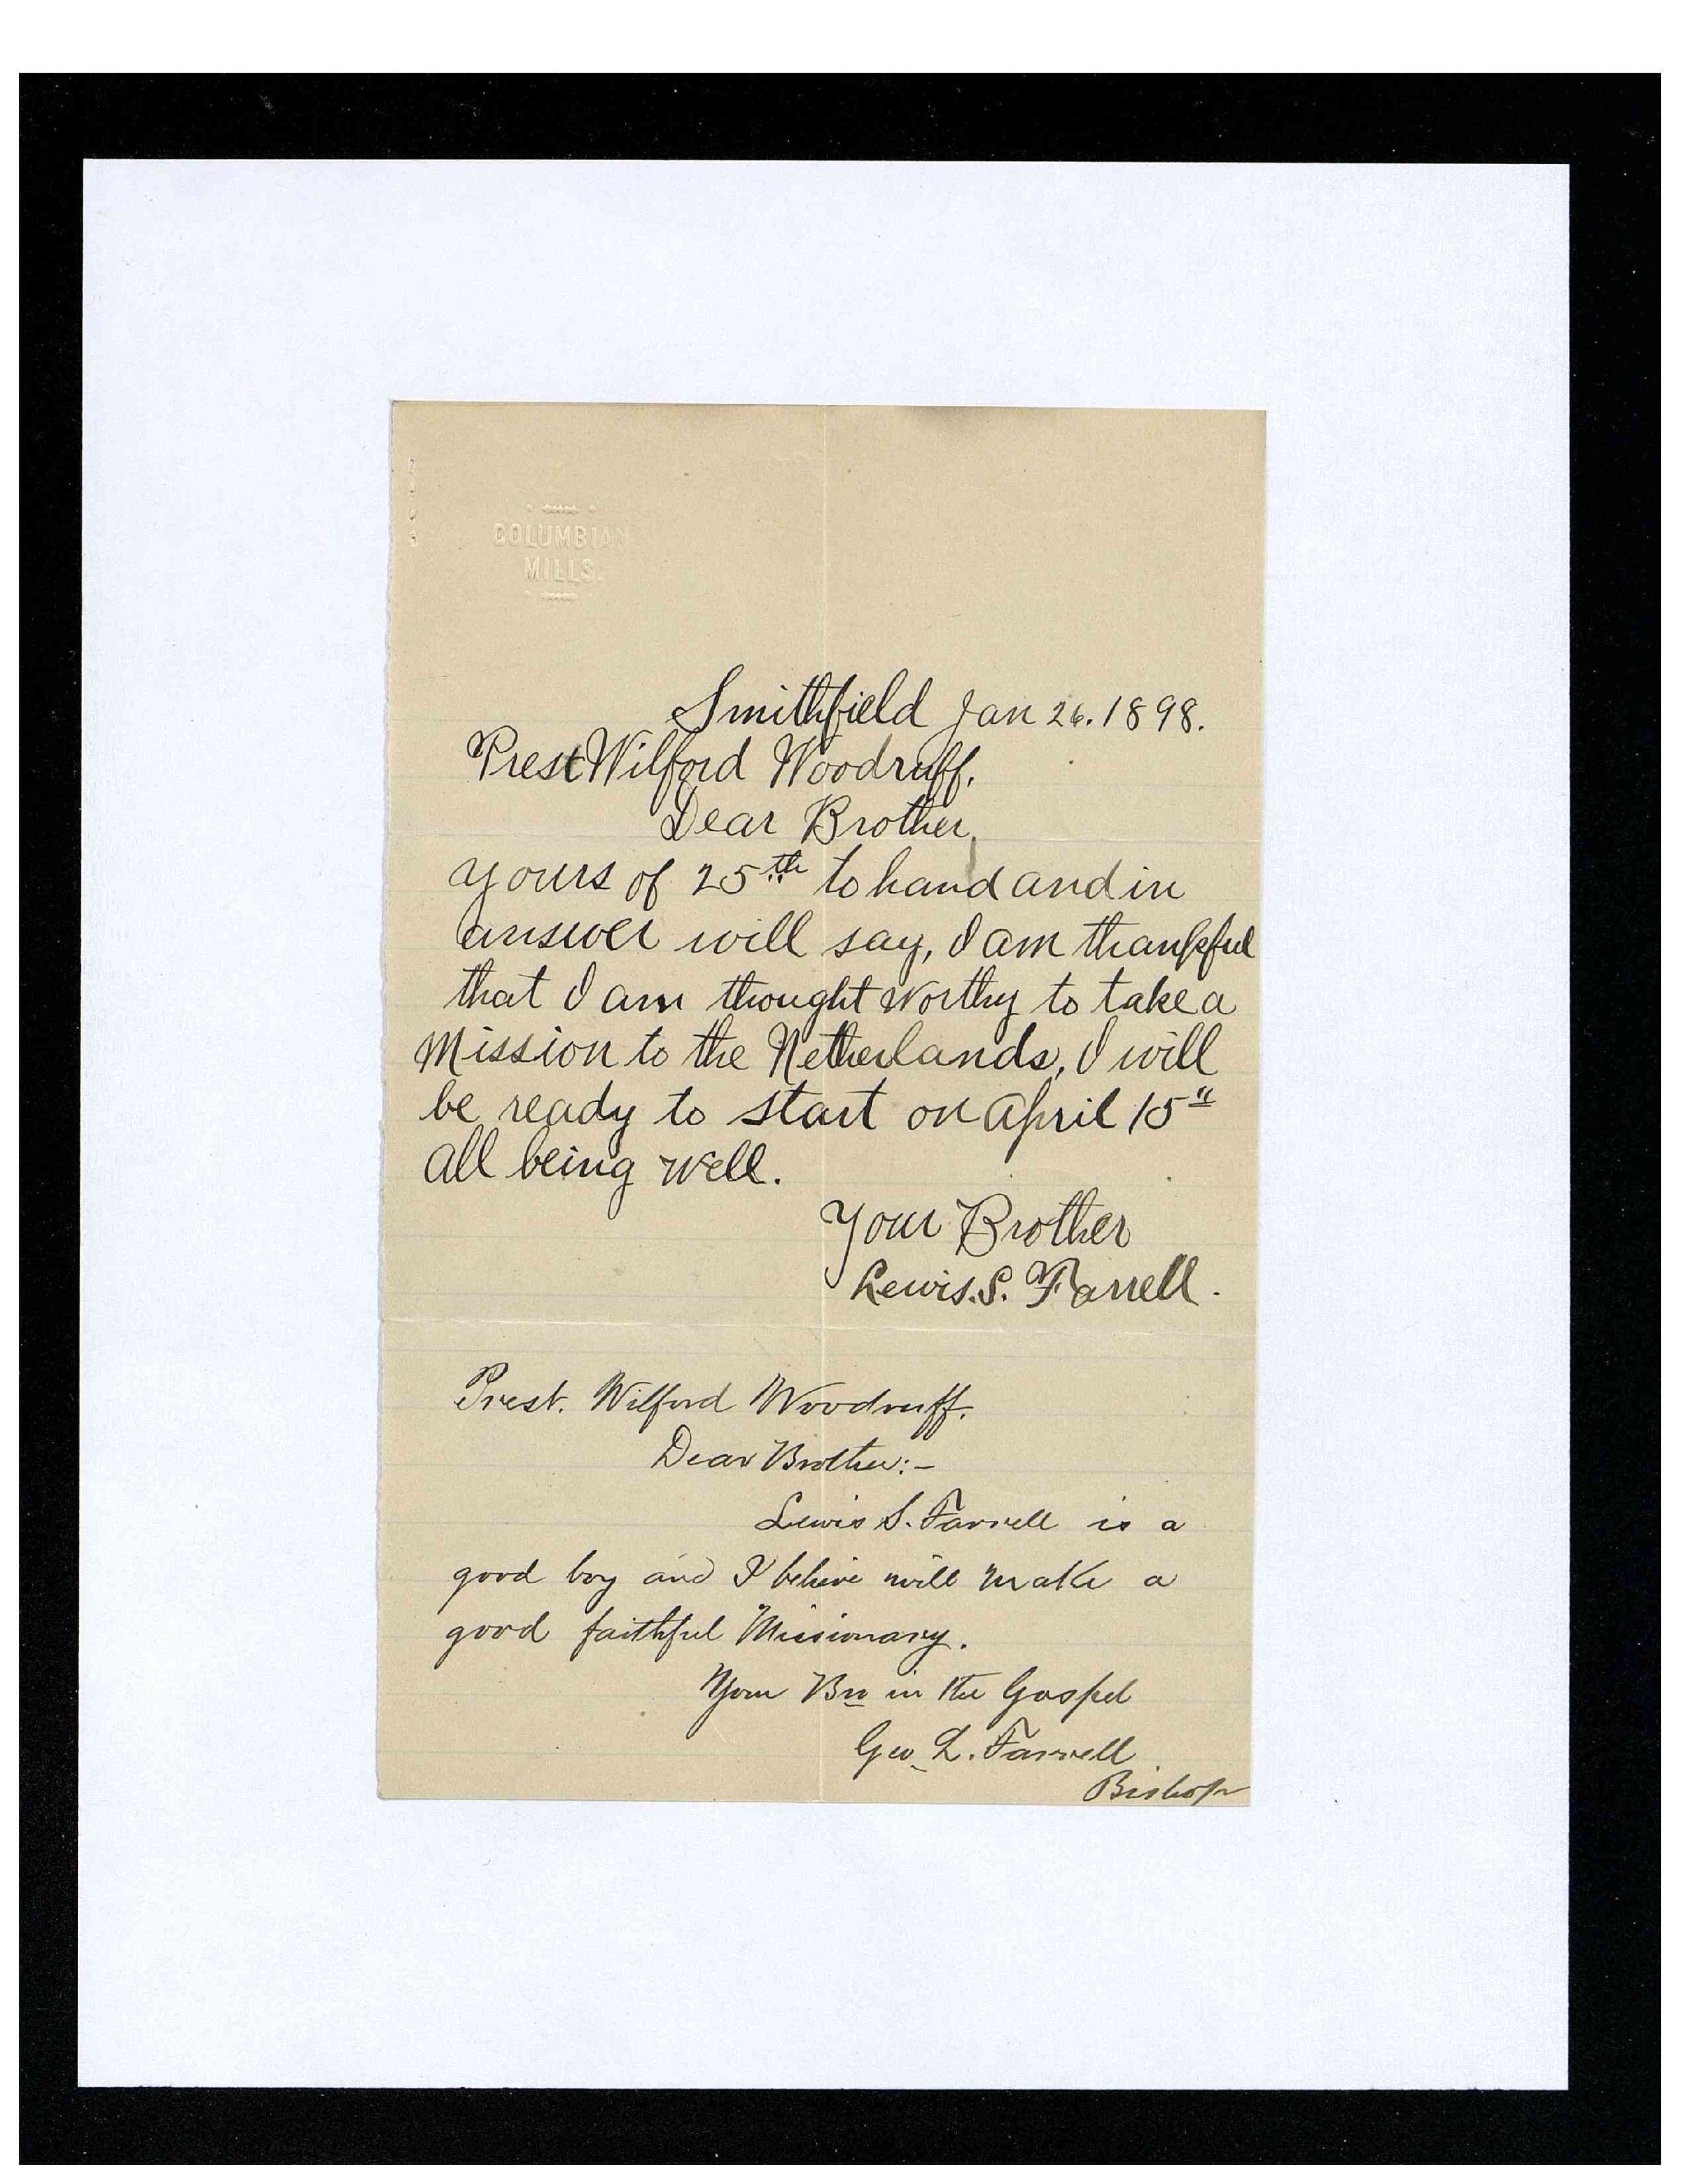 COLUMBIAN
MILLS.
Smithfield Jan 26. 1898.
Prest Wilford Woodruff.
Dear Brother,
yours of 25th to hand and in
answer will say, I am thankful
that I am thought worthy to take a
Mission to the Netherlands, I will
be ready to start on April 15"
all being well.
Your Brother
Lewis. S. Farrell.
Prest. Wilford Woodruff.
Dear Brother:-
Lewis S. Farrell is a
good boy and I believe will make a
good faithful Missionary.
Your Bro in the Gospel
Geo. L. Farrell
Bishop